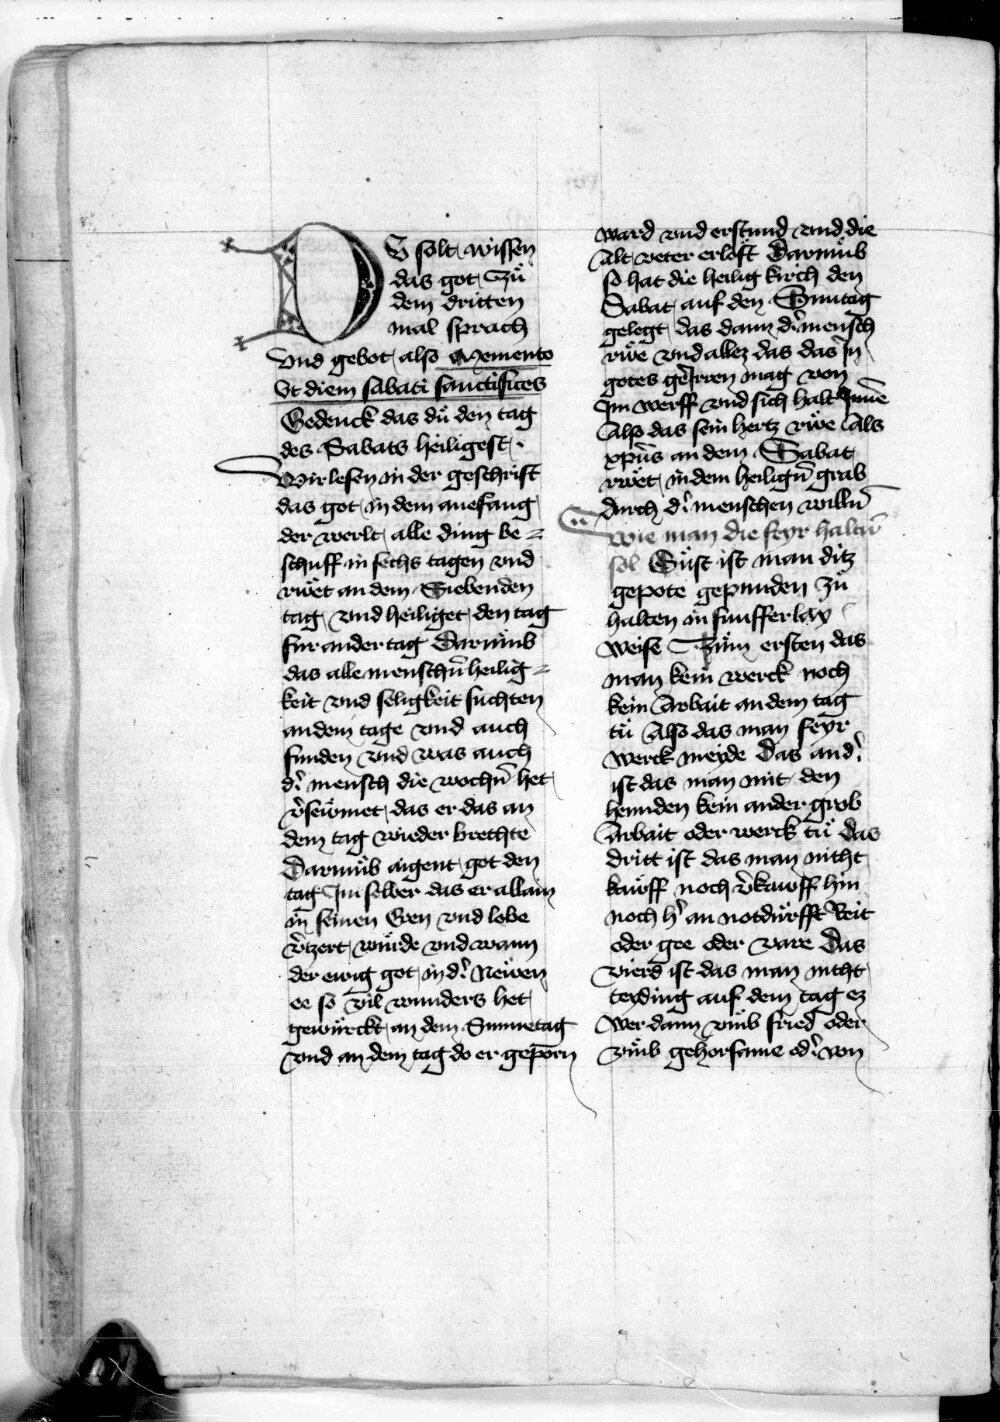 DV solt wissen
das got zuͦ
dem dritten
mal sprach
vnd gebot also Memento
vt diem sabati sanctifices
Gedenck das duͦ den tag
des Sabats heiligest.
Wir lesen in der geschrift
das got in dem anefang
der werlt alle ding be=
schuff in sechs tagen vnd
rwͦet an dem Siebenden
tag vnd heiliget den tag
fur ander tag Darumb
das alle menschn̄ heilig=
keit vnd seligkeit suchten
an dem tage vnd auch
funden vnd was auch
d' mensch die wochn̄ het
v'sewmet das er das an
dem tag wider brechte
Darumb aigent got den
tag Im selber das er allain
in seinen Eren vnd lobe
v'tzert wuͤrde vnd wann
der ewig got in d' Newen
ee so vil wunders het
gewuͤrckt an dem Sunnetag
vnd an dem tag do er geporn
ward vnd erstund vnd die
alt veter erloͤst Darumb
so hat die heilig kirch den
Sabat auf den Sunntag
gelegt das dann d' mensch
rwͦe vnd allez das das In
gotes geIrren mag von
Im werff vnd sich halt Inne
Also das sein hertz rwͦe Als
xp̄us an dem Sabat
rwͦet in dem heilign̄ grab
durch d' menschen willn̄
wie man die feyr haltn̄
sol Suͤst ist man ditz
gepote gepunden zuͦ
halten in funfferlay
weise Zum ersten das
man kein werck noch
kein Arbait an dem tag
tuͦ Also das man feyr
werck meyde Das and'
ist das man mit den
hennden kein ander grob
Arbait oder werck tuͦ Das
dritt ist das man nicht
kauff noch v'kauff hin
noch h' an notdurfft Reit
oder gee oder vare Das
vierd ist das man nicht
teyding auf dem tag ez
wer dann vmb fried oder
vmb gehorsame od' von